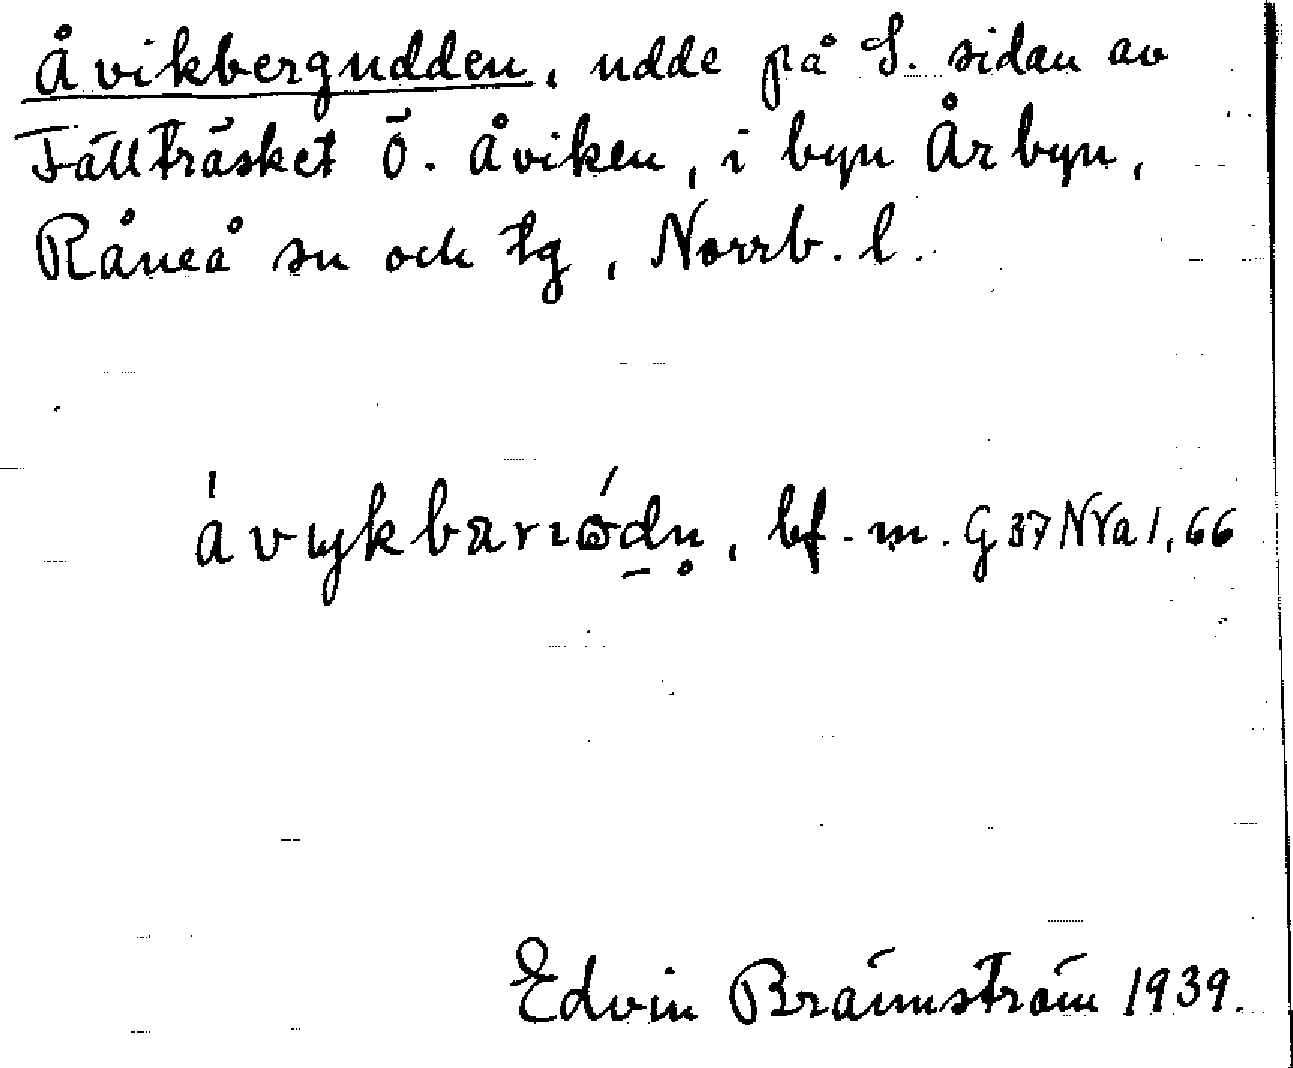 Åvikbergudden, udde på S. sidan av
Fällträsket Ö. Åviken, i byn Årbyn,
Råneå sn och tg, Norrb. l.
bf. m. G 37 NVa 1, 66
Edvin Brännström 1939.